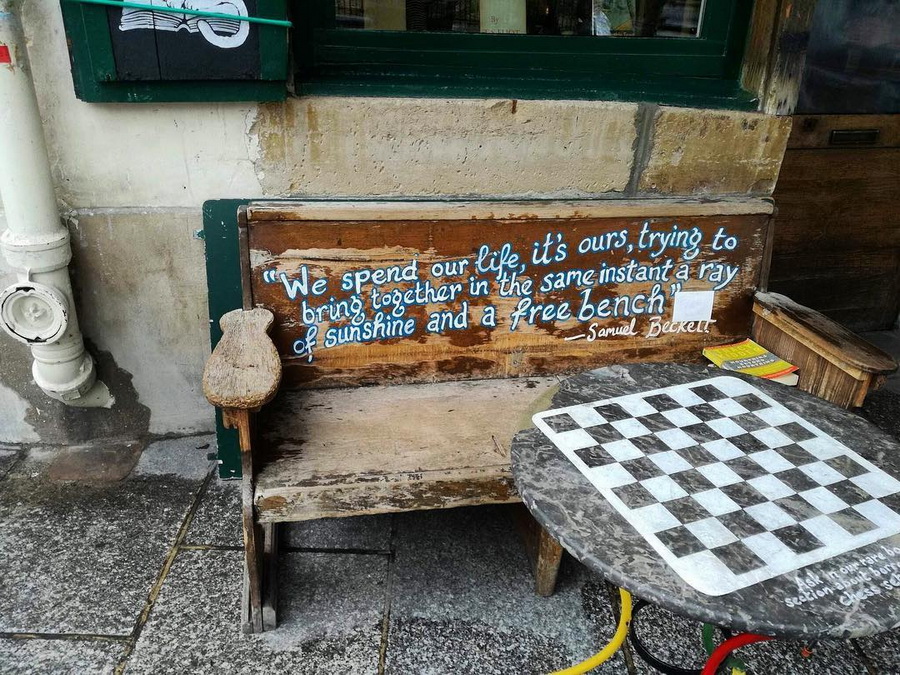 “We spend our life, it's ours, trying to
bring together in the same instant a ray
of sunshine and a free bench”
—Samuel Beckett
Ask in our rare bo
section about
chess se